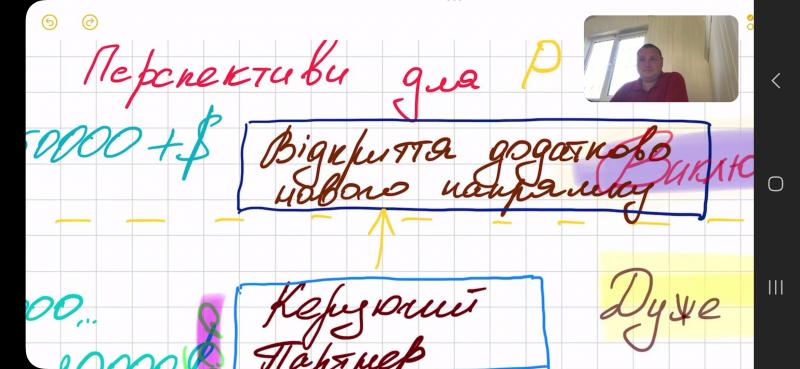 Перспективи для P
50000 +$
Відкриття додатково
нового напрямку
Виклю
000...
Керуючий
Партнер
Дуже
10000